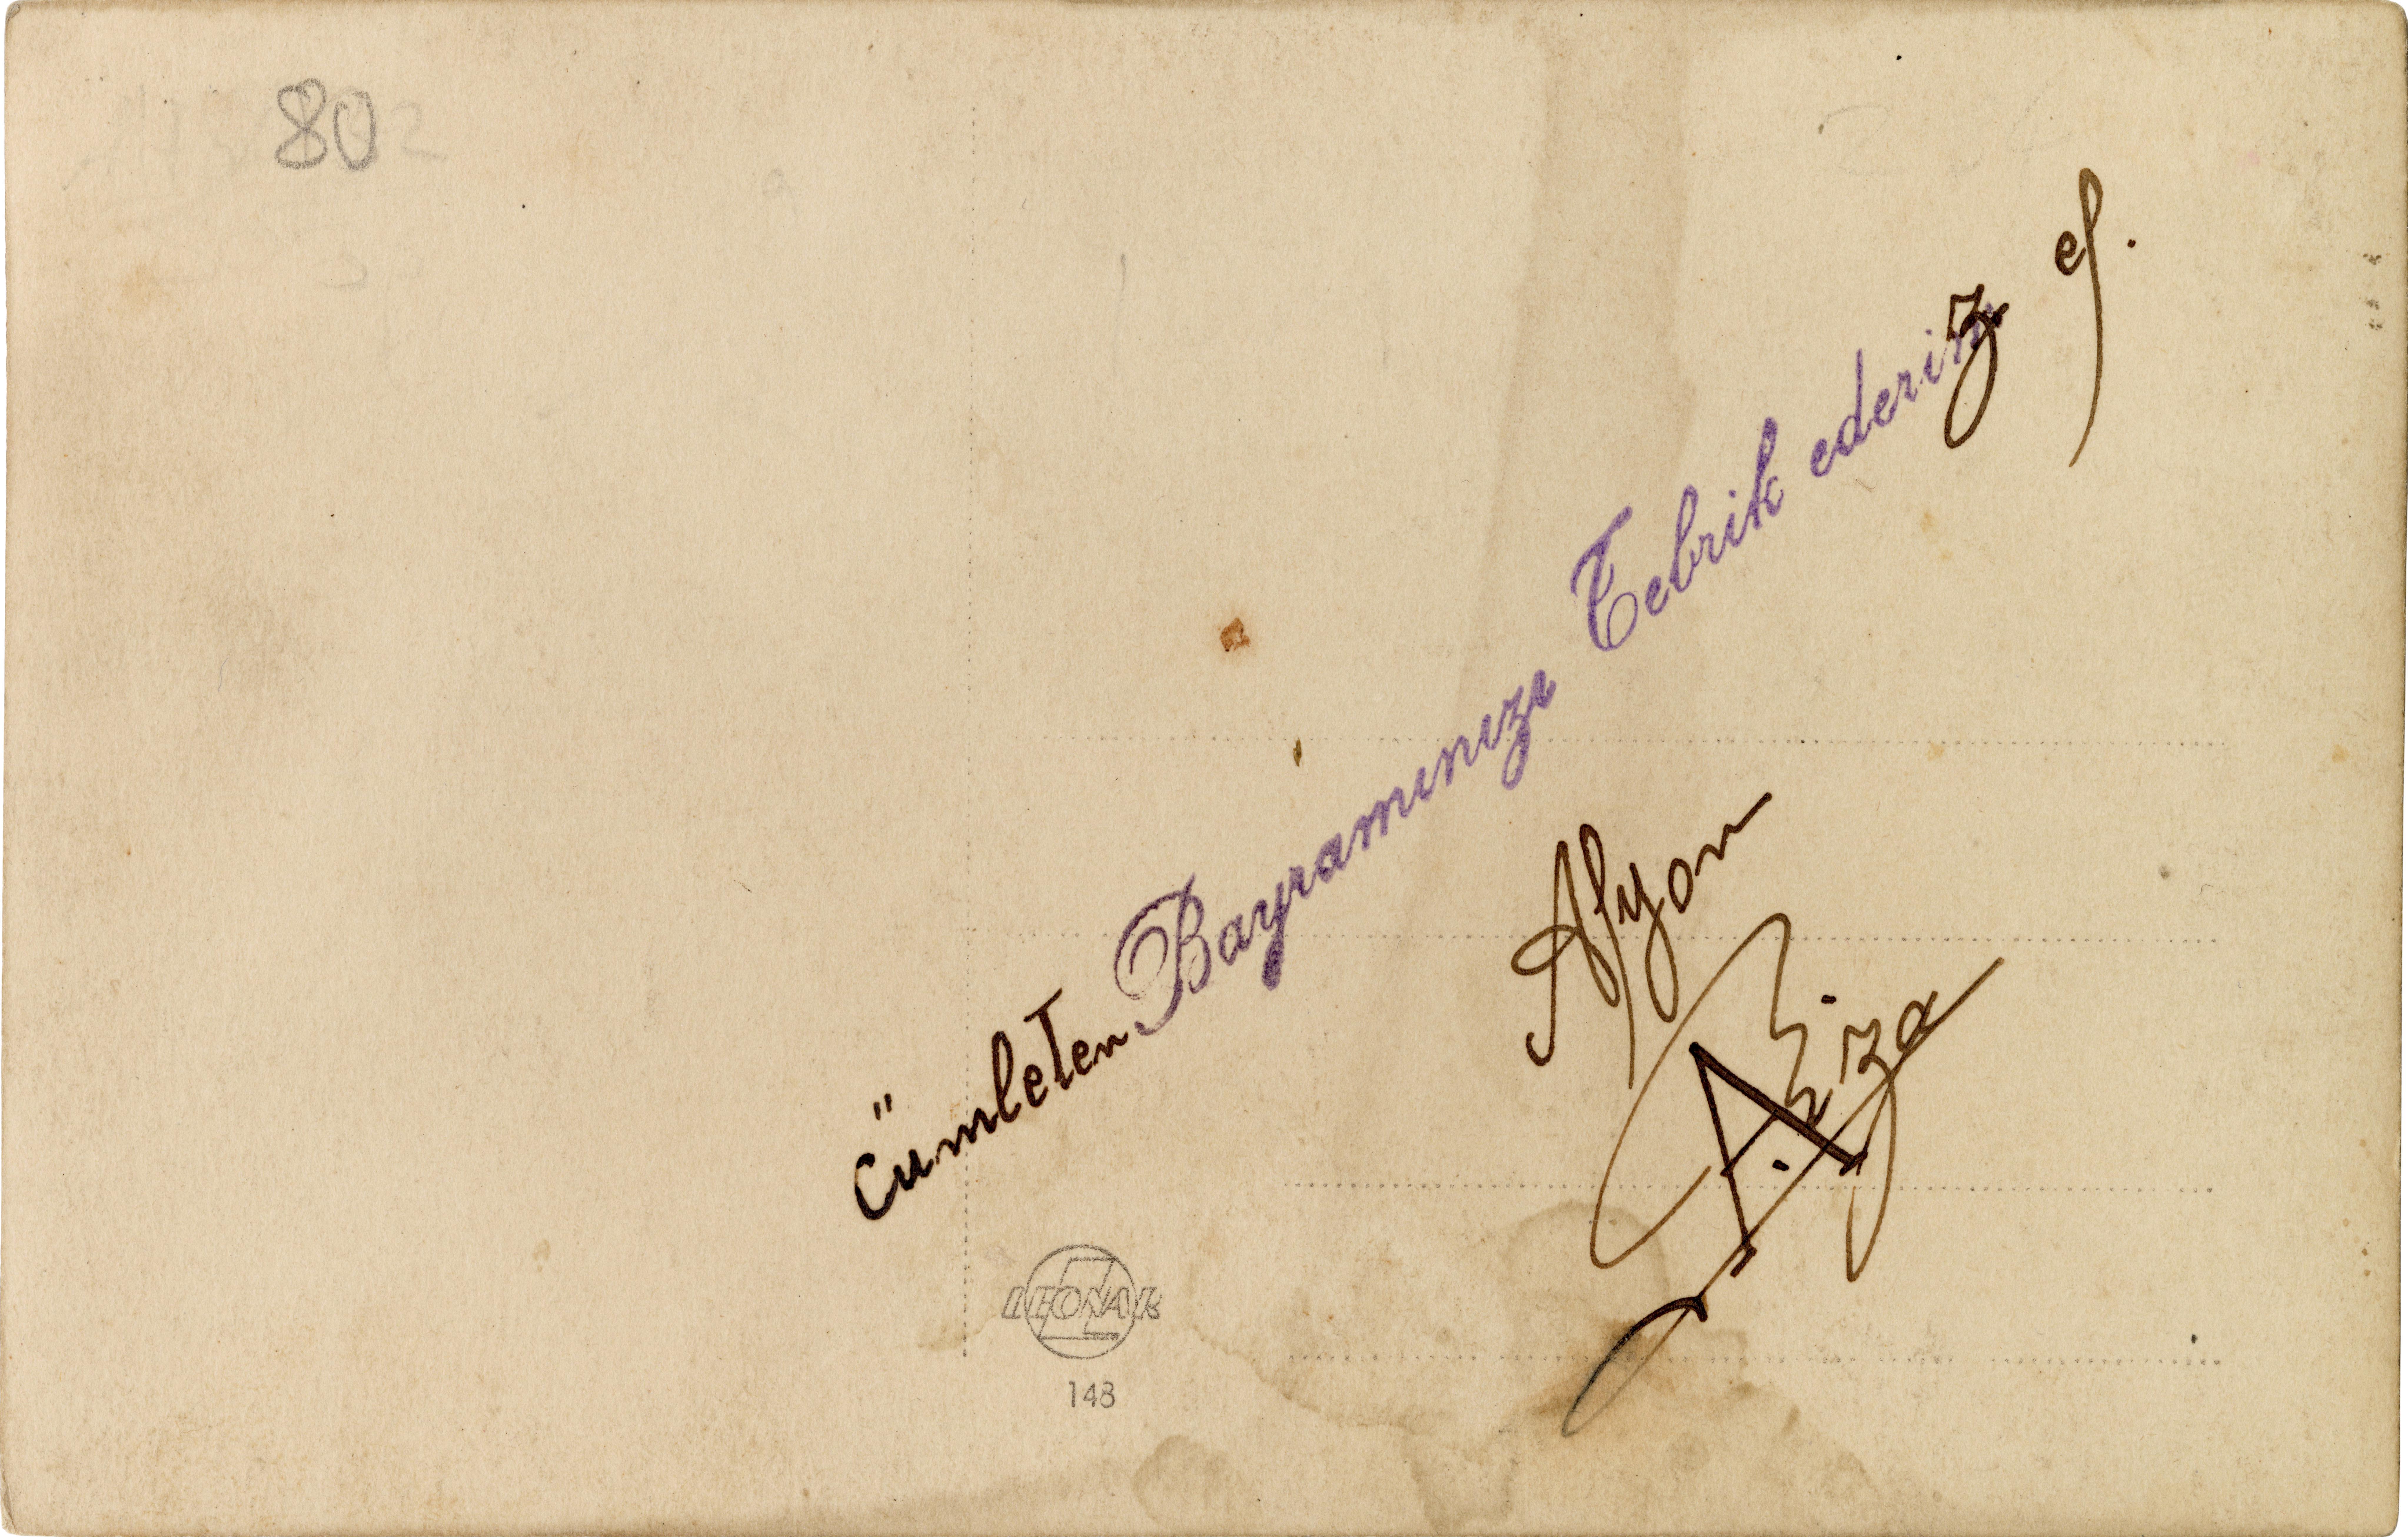 80
Cümleten Bayramınızı Tebrik ederiz ef.
Afyon
Rıza
LEONAR
148